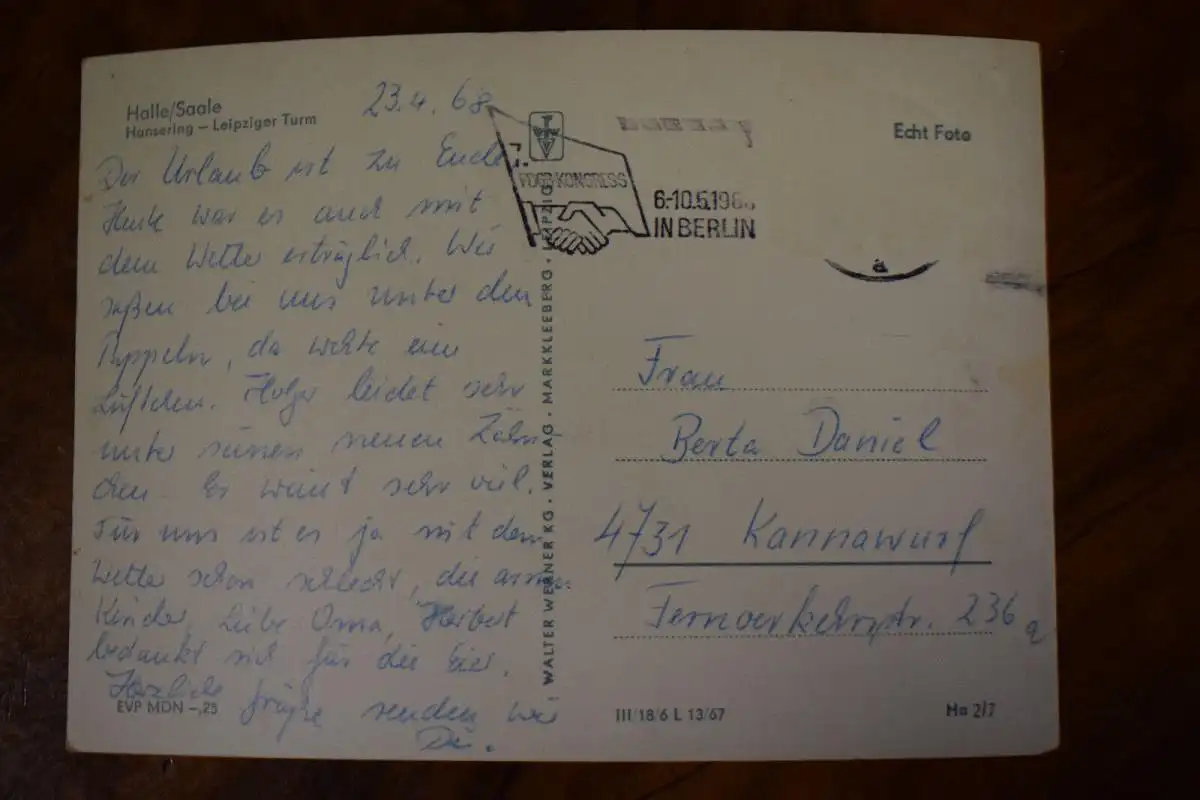 Halle/Saale
Hansering – Leipziger Turm
23.4.68
Der Urlaub ist zu Ende
Heute war es auch mit
dem Wetter erträglich. Wir
saßen bei uns unter den
Pappeln, da wehte ein
Lüftchen. Holger leidet sehr
unter seinen neuen Zähn-
chen. Er weint sehr viel.
Für uns ist es ja mit dem
Wetter schon schlecht, die armen
Kinder. Liebe Oma, Herbert
bedankt sich für die Eier.
Herzliche
Grüße senden wir
Dir.
EVP MDN –,25
WALTER WERNER KG · VERLAG · MARKKLEEBERG · LEIPZIG
FDGB-KONGRESS
6.-10.5.1968
IN BERLIN
Echt Foto
a
Frau
Berta Daniel
4731 Kannawurf
Fernverkehrsstr. 236a
III/18/6 L 13/67
Ha 2/7